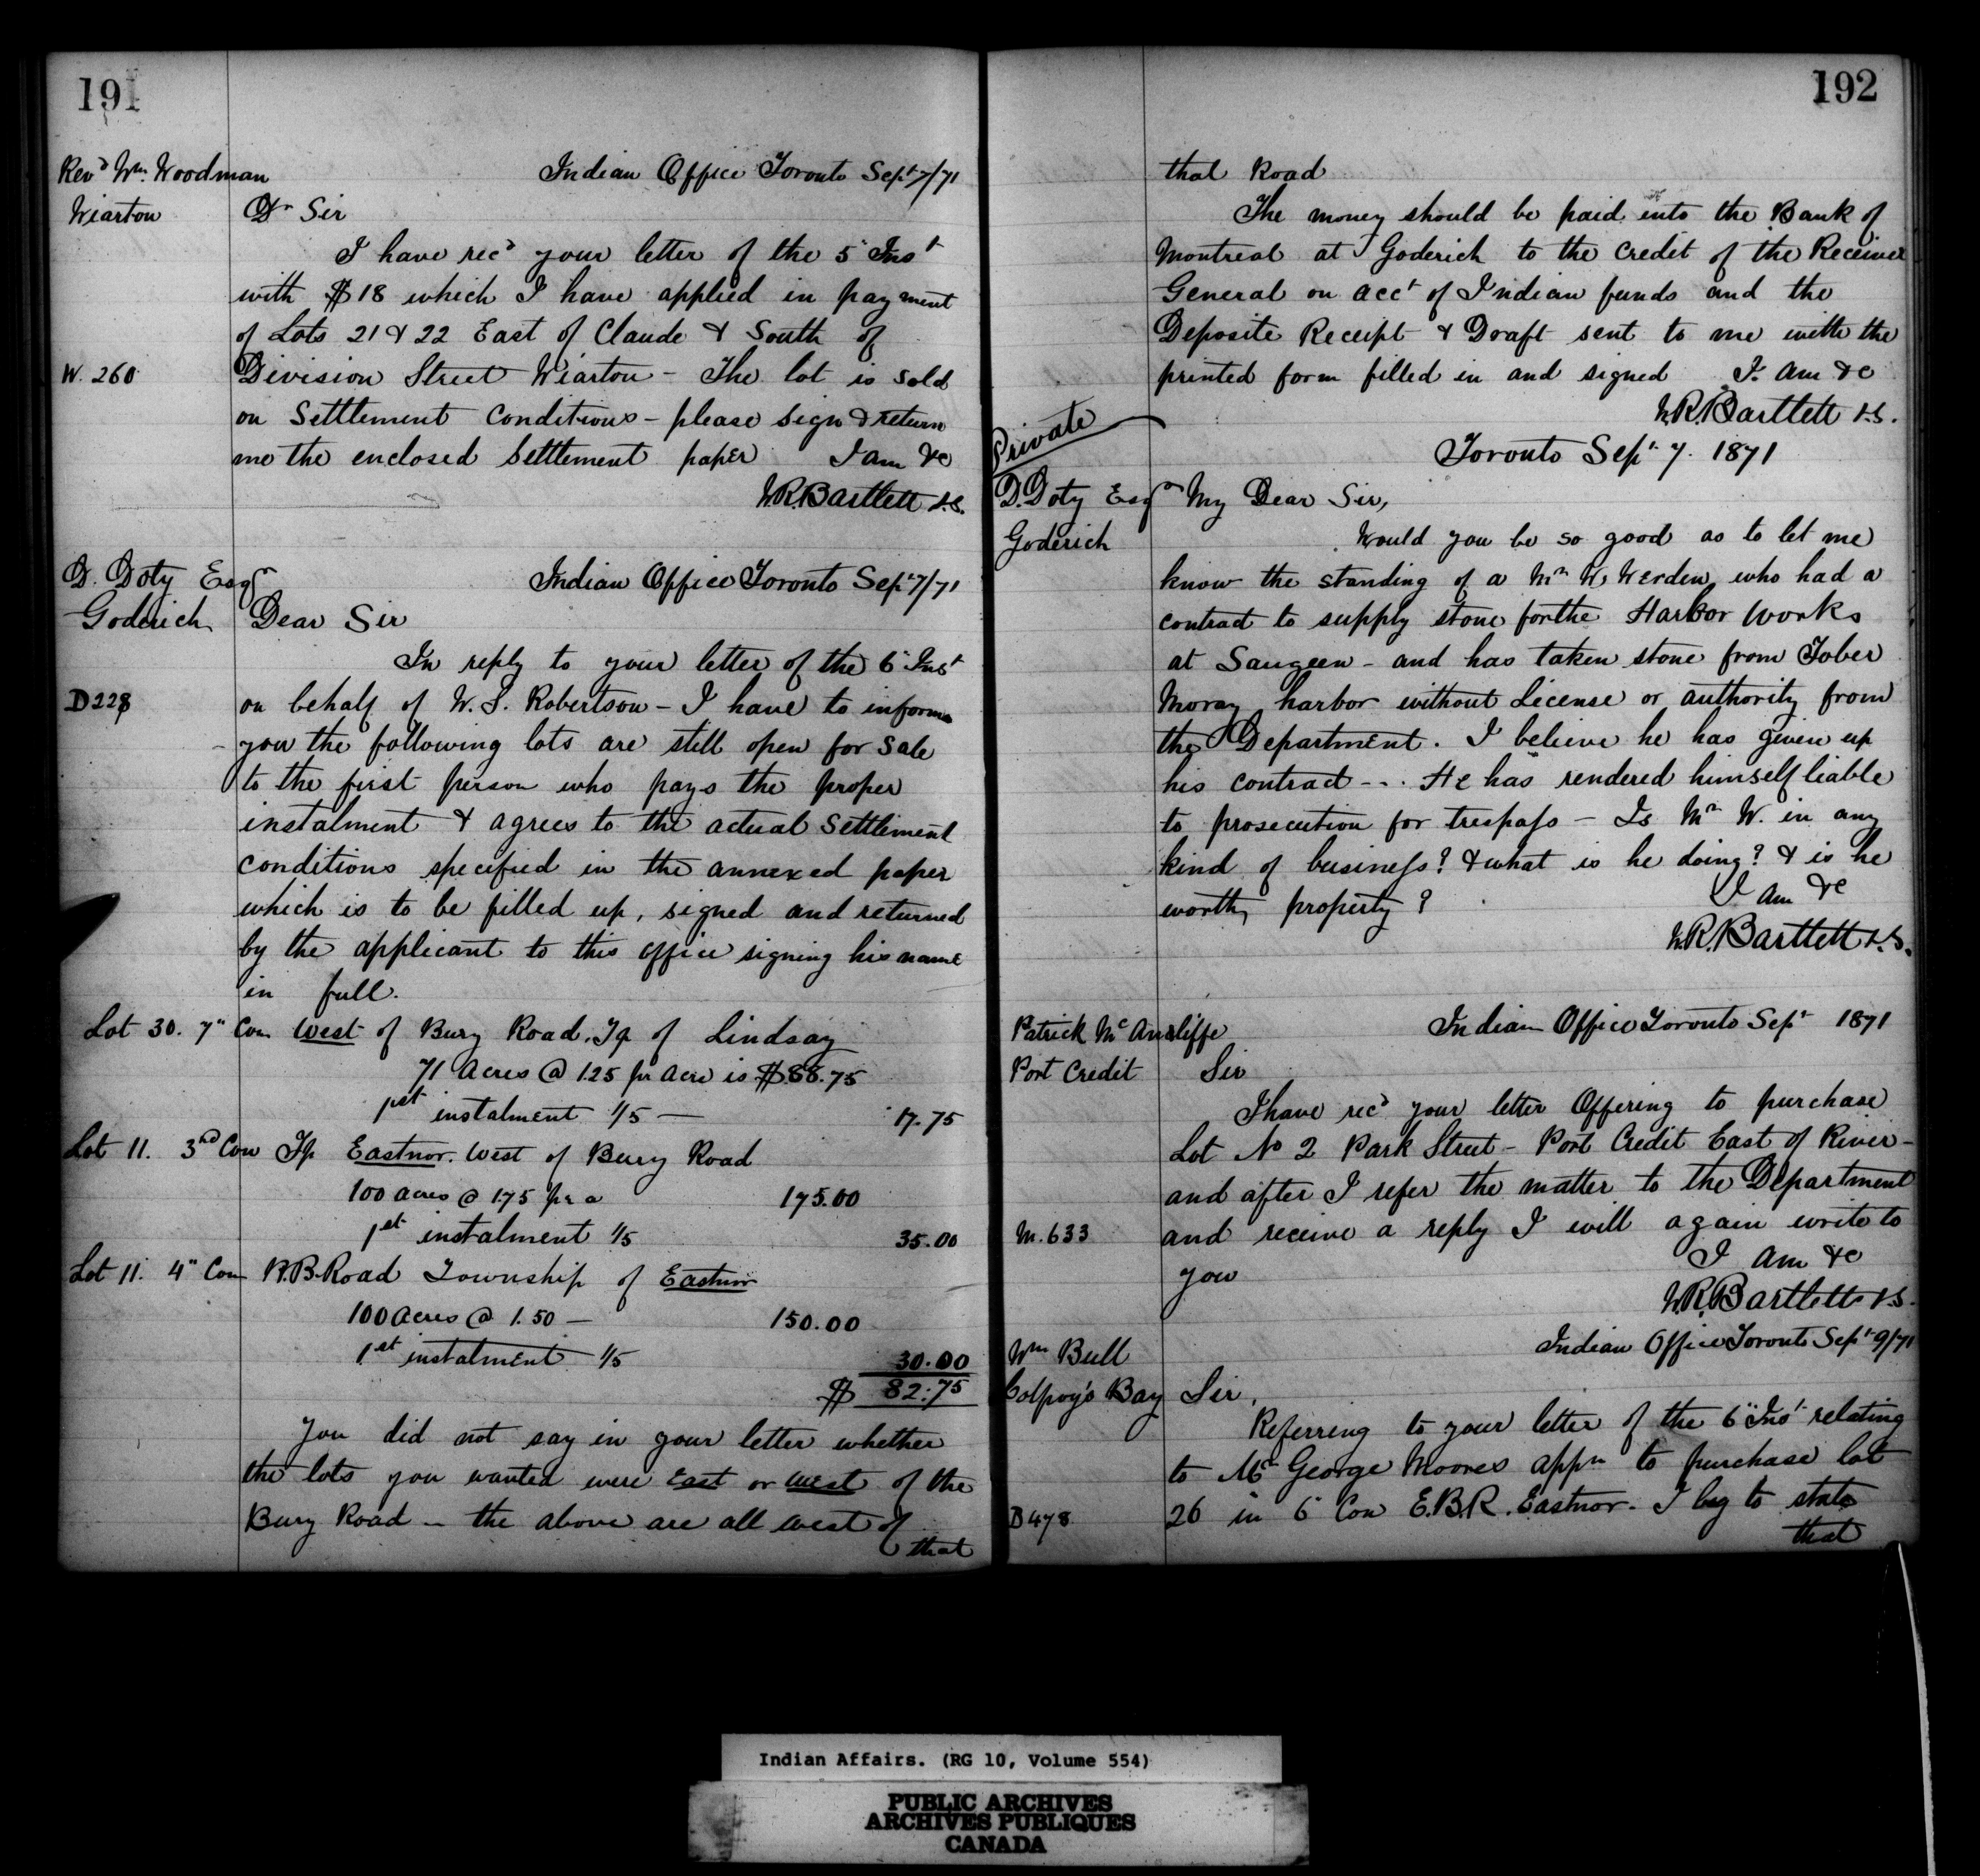 191
Rev^d W^m. Woodman
Wiarton
Indian Office Toronto Sep^t 7/71
D^r Sir
I have rec^d your letter of the 5" Ins^t
with $18 which I have applied in payment
of Lots 21 & 22 East of Claude & South of
W. 260
Division Street Wiarton - The lot is sold
on Settlement Conditions - please sign & return
me the enclosed Settlement paper I am &c
W.R. Bartlett V.S.
D. Doty Esq^r
Goderich
Indian Office Toronto Sep^t 7/71
Dear Sir
In reply to your letter of the 6" Ins^t
D 228
on behalf of W. S. Robertson - I have to inform
you the following lots are still open for Sale
to the first person who pays the proper
instalment & agrees to the actual Settlement
conditions specified in the annexed paper
which is to be filled up, signed and returned
by the applicant to this office signing his name
in full.
Lot 30. 7" Con West of Bury Road. Tp of Lindsay
71 Acres @ 1.25 pr Acre is $88.75
1st instalment 1/5 — 17.75
Lot 11. 3rd Con Tp Eastnor. West of Bury Road
100 acres @ 1.75 pr a 175.00
1st instalment 1/5 35.00
Lot 11. 4" Con W.B. Road Township of Eastnor
100 Acres @ 1.50 — 150.00
1st instalment 1/5 30.00
$ 82.75
You did not say in your letter whether
the lots you wanted were East or West of the
Bury Road - the above are all west of
that
192
that Road
The money should be paid into the Bank of
Montreal at Goderich to the credit of the Receiver
General on acc^t of Indian funds and the
Deposite Receipt & Draft sent to me with the
printed form filled in and signed I am &c
W.R. Bartlett V.S.
Private
Toronto Sep^t 7. 1871
D. Doty Esq^r
Goderich
My Dear Sir,
Would you be so good as to let me
know the standing of a M^r W. Werden who had a
contract to supply stone for the Harbor Works
at Saugeen - and has taken stone from Tober
Moray harbor without License or authority from
the Department. I believe he has given up
his contract - - . He has rendered himself liable
to prosecution for trespass - Is M^r W. in any
kind of business? & what is he doing? & is he
worth property? I am &c
W.R. Bartlett V.S.
Patrick M^c
Port Credit
Indian Office Toronto Sep^t 1871
Sir
I have rec^d your letter Offering to purchase
Lot No 2 Park Street - Port Credit East of River -
and after I refer the matter to the Department
M. 633
and receive a reply I will again write to
you I am &c
W.R. Bartlett V.S.
Indian Office Toronto Sep^t 9/71
W^m Bull
Colpoy's Bay
Sir,
Referring to your letter of the 6" Ins^t relating
to M^r George Moores app^n to purchase lot
B 478
26 in 6" Con E.B.R. Eastnor. I beg to state
that
Indian Affairs. (RG 10, Volume 554)
PUBLIC ARCHIVES
ARCHIVES PUBLIQUES
CANADA